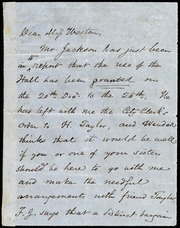 Dear Miss Weston,
Mr. Jackson has just been
in to report that the use of the
Hall has been granted on
the 20th Dec. to the 26th; He
has left with me the City Clerk's
order to H. Taylor, and Wendell
thinks that it would be well
if you or one of your sisters
should be here to go with
and make the needful
arrangements with friend Taylor
F. J. says that a distinct bargain